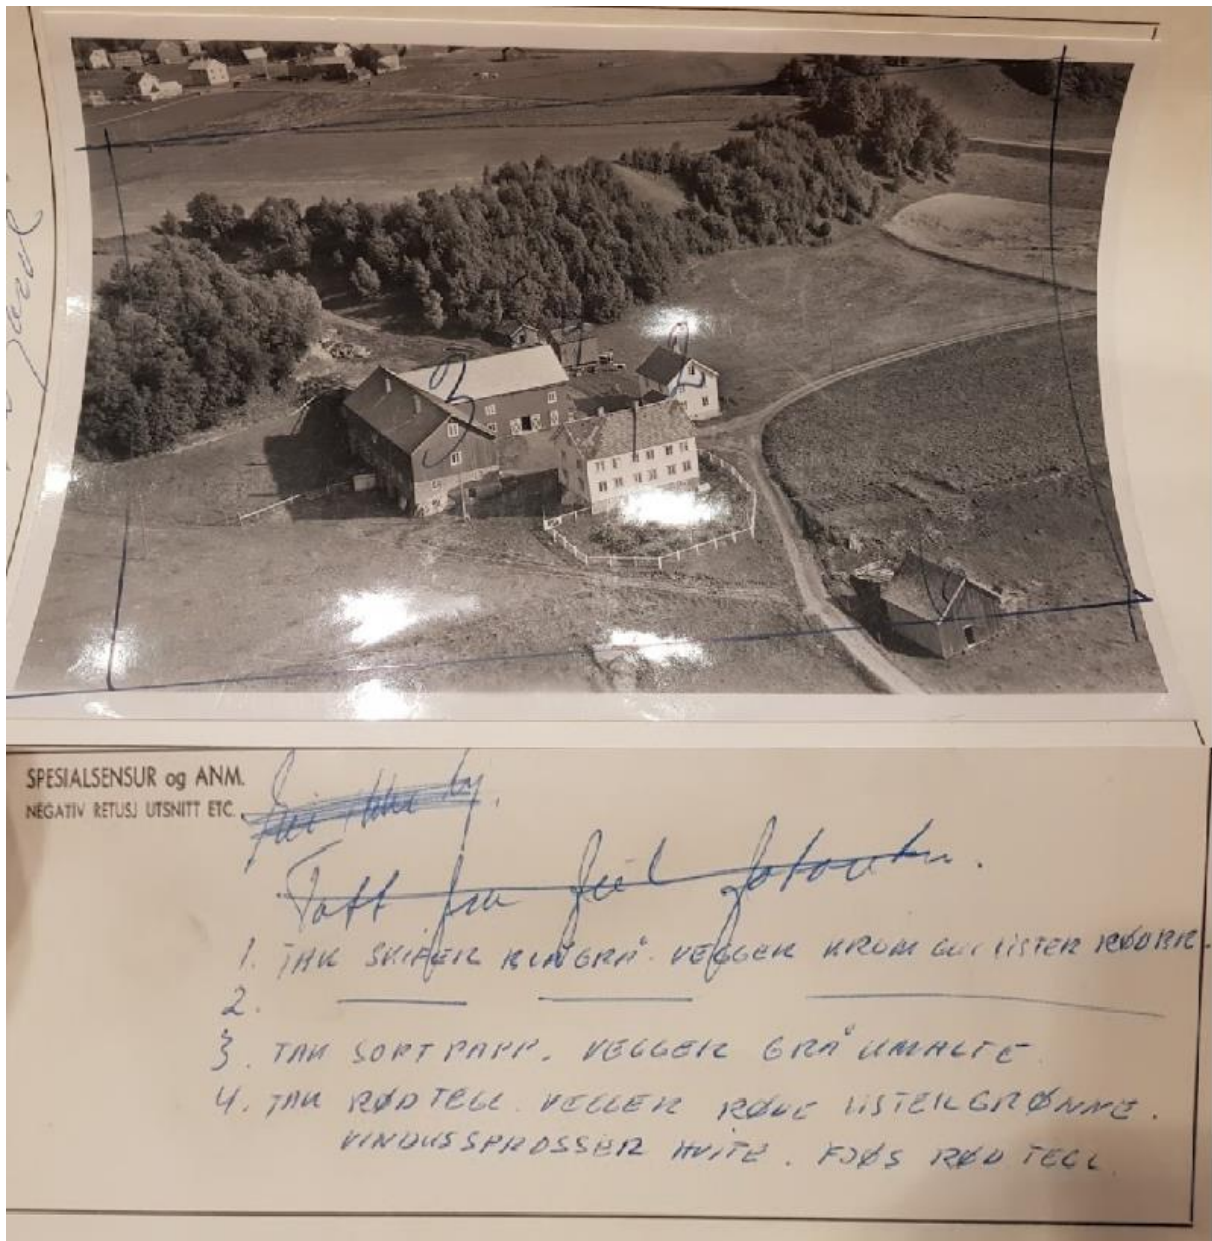 3
2
1
SPESIALSENSUR og ANM.
NEGATIV RETUSJ UTSNITT ETC.
Tatt fra feil
1. TAK SKIFER BLÅGRÅ. VEGGER KROM GUL LISTER RØDBR.
2.
3. TAK SORT PAPP. VEGGER GRÅ UMALTE
4. TAK RØD TEGL. VEGGER RØDE LISTER GRØNNE.
VINDUSSPROSSER HVITE. FJØS RØD TEGL